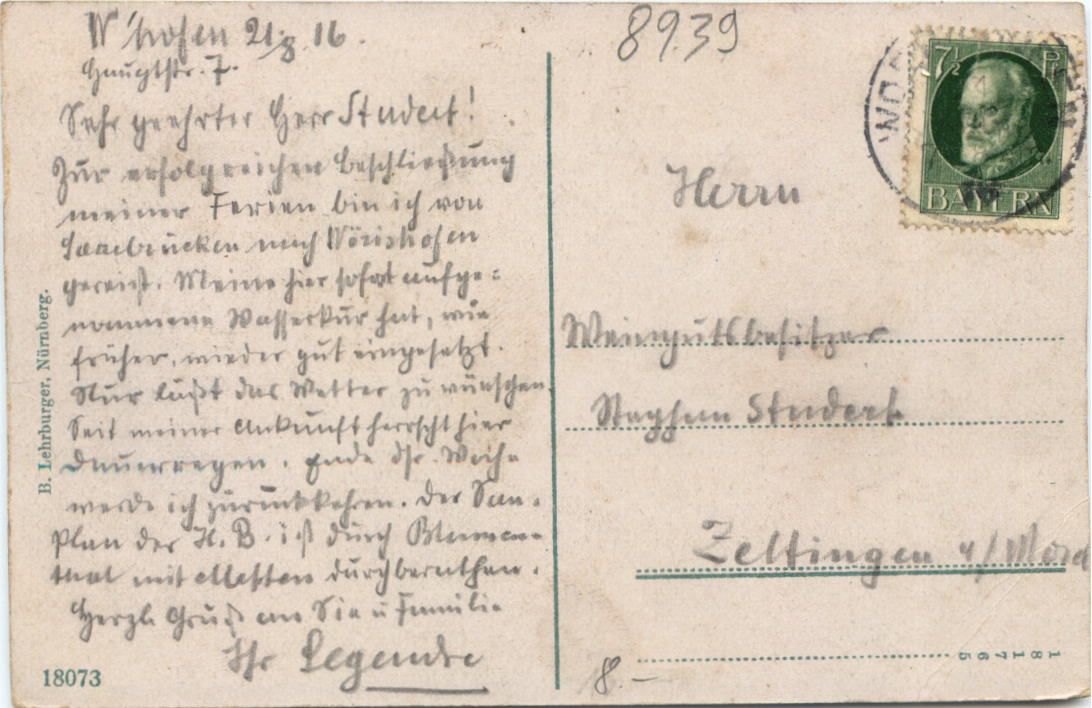 W'hofen 21/8 16.
Hauptstr. 7.
Sehr geehrter Herr Studert!
Zur erfolgreichen Beschließung
meiner Ferien bin ich von
Saarbrücken nach Wörishofen
gereist. Meine hier sofort aufge=
nommene Wasserkur hat, wie
früher, wieder gut eingesetzt.
Nur läßt das Wetter zu wünschen.
Seit meiner Ankunft herrscht hier
Dauerregen. Ende dsr. Woche
werde ich zurückkehren. Der
Plan der H. B. ist durch
mit durchberathen.
Herzl. Gruß an Sie u Familie
Ihr Legendre
8939
7½ P
BAYERN
Herrn
Weingutsbesitzer
Stephan Studert
Zeltingen a/Mosel
8.–
B. Lehrburger, Nürnberg.
18073
1 8 1 7 6 5